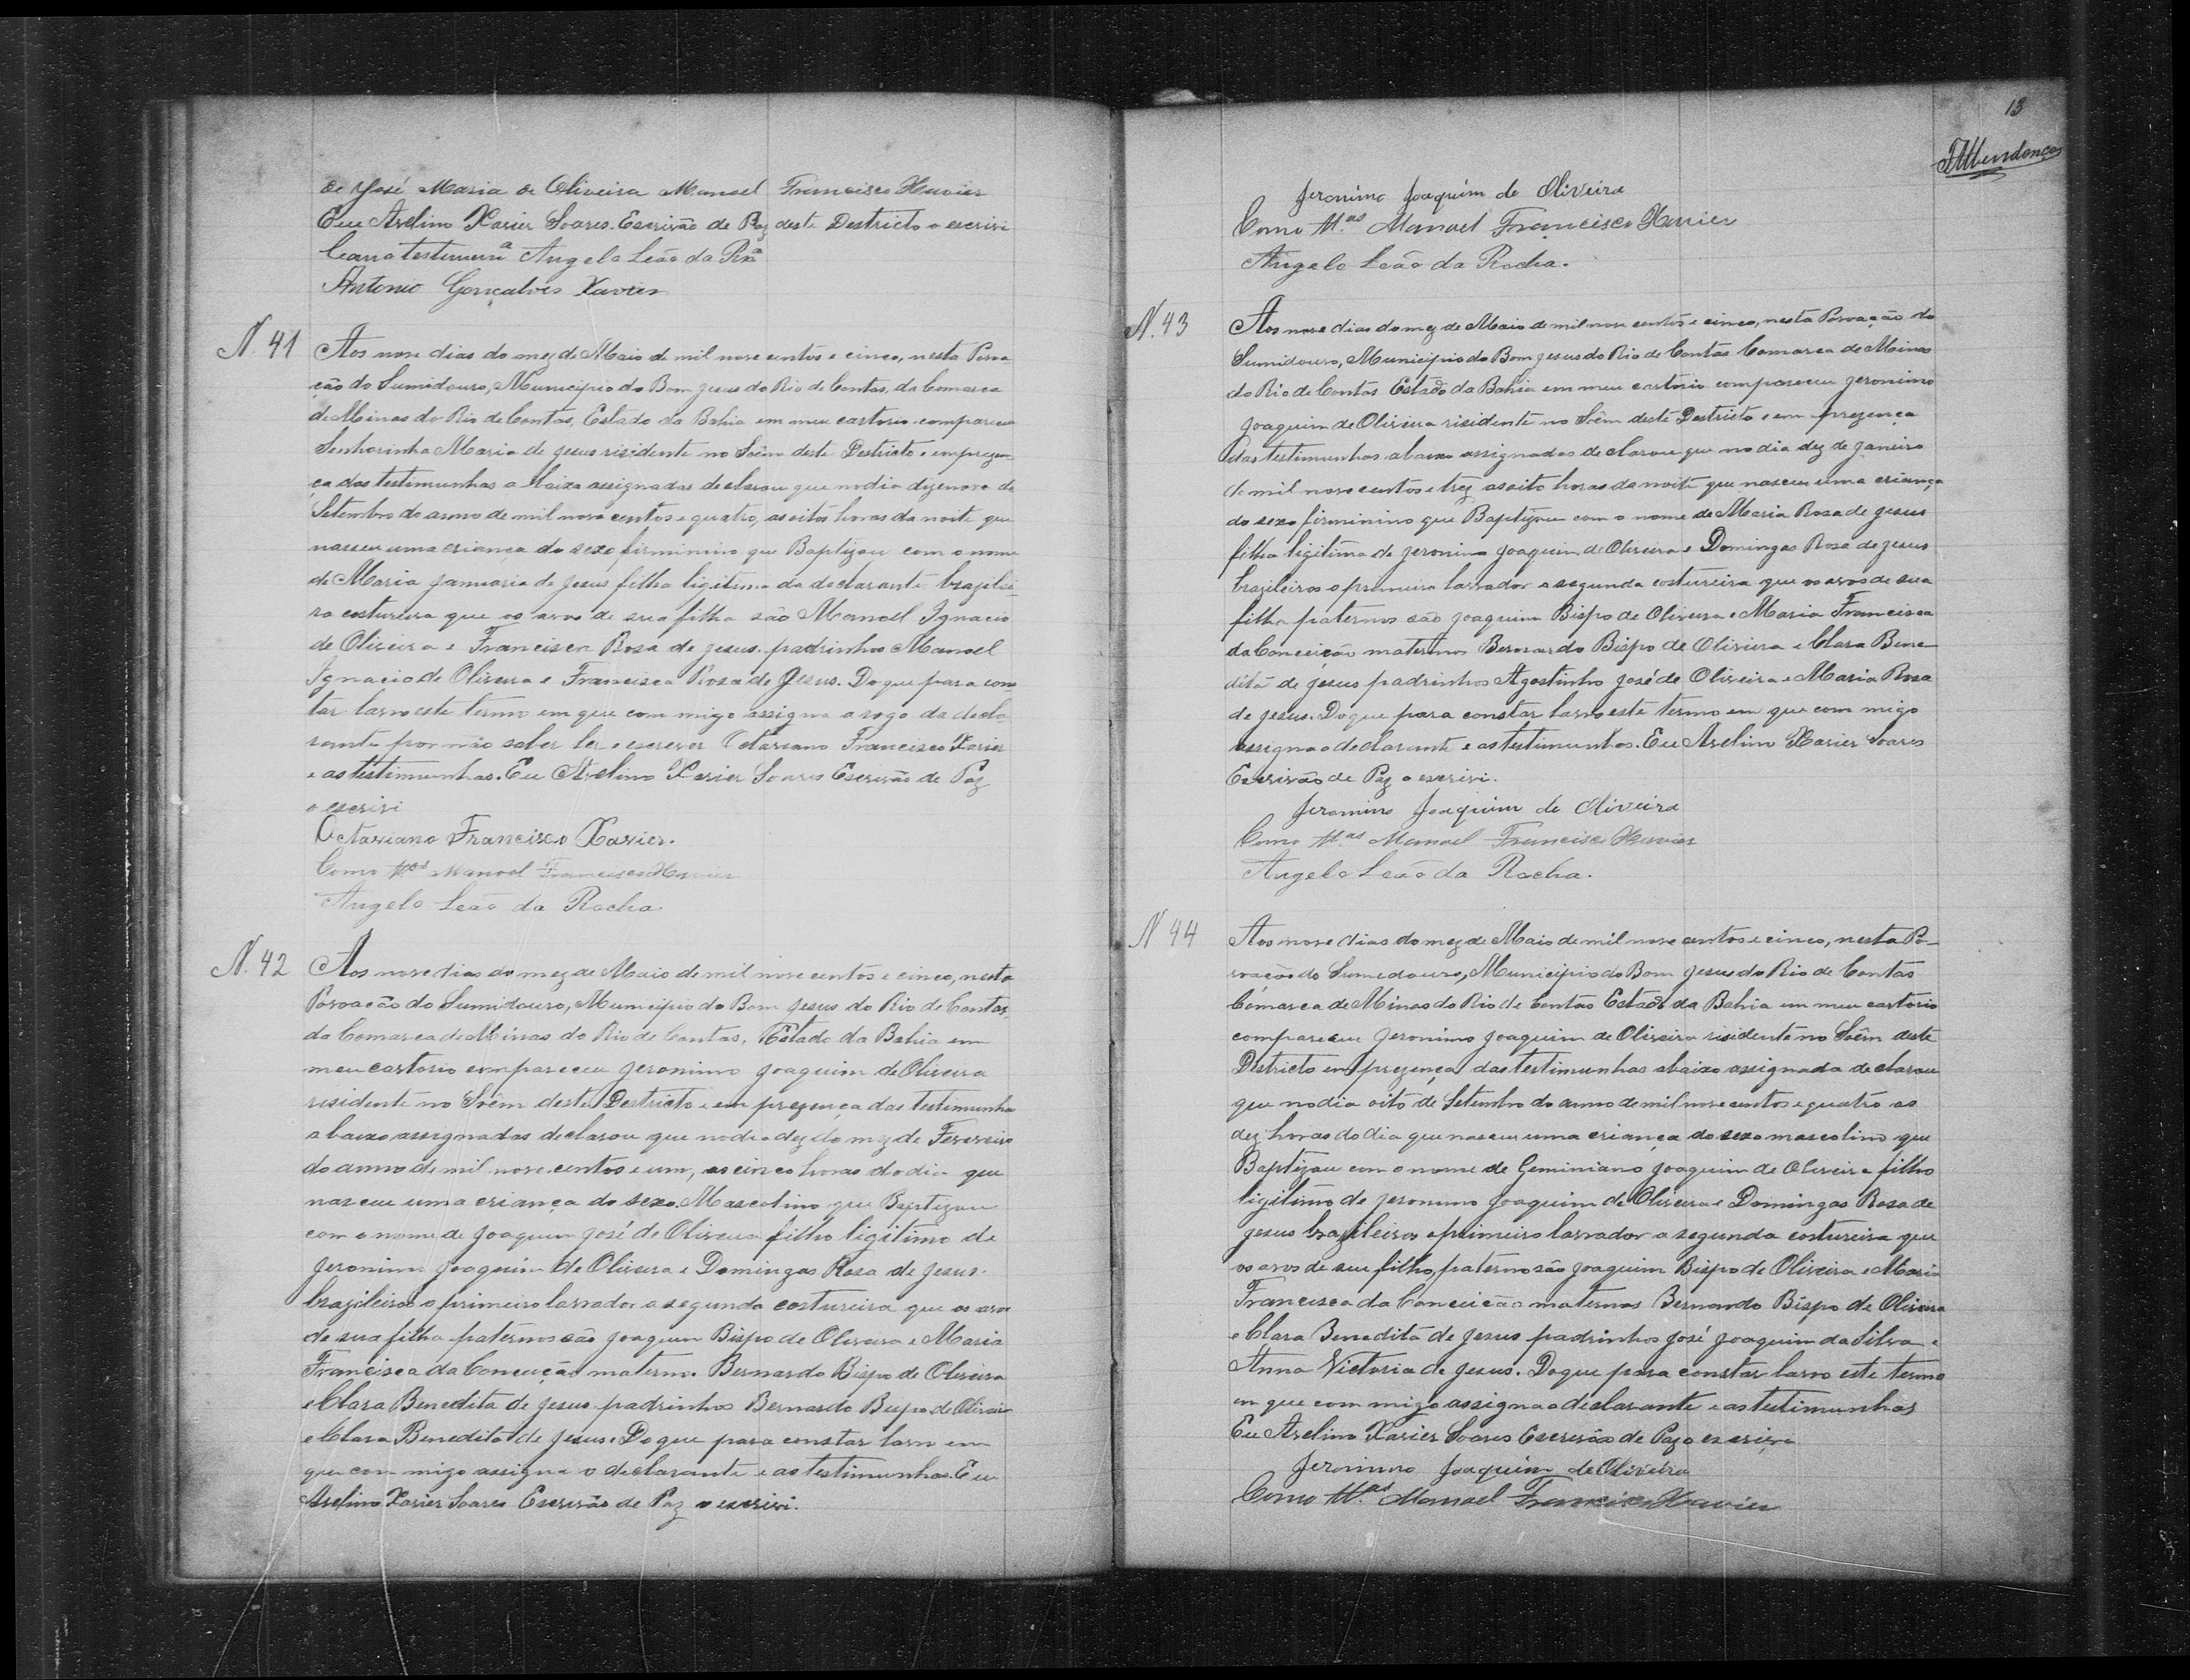 de José Maria de Oliveira Manoel Francisco Xavier
Eu Avelino Xavier Soares Escrivão de Paz deste Destricto o escrivi
Como testemunª Angelo Leão da Rxª
Antonio Gonçalves Xavier
N. 41 Aos nove dias do mez de Maio de mil nove centos e cinco, nesta Povoa-
ção do Sumidouro, Municipio do Bom Jesus do Rio de Contas, da Comarca
de Minas do Rio de Contas, Estado da Bahia em meu cartorio compareceu
Senhorinha Maria de Jesus risidente no Soêm deste Destricto e em prezen-
ça das testimunhas abaixa assignadas declarou que no dia dizenove de
Setembro do anno de mil nove centos e quatro, as oito horas da noite que
nasceu uma criança do sexo firminino que Baptizou com o nome
de Maria Januaria de Jesus filha ligitima da declarante brazilei-
ra costureira que os avos de sua filha são Manoel Ignacio
de Oliveira e Francisca Rosa de Jesus. padrinhos Manoel
Ignacio de Oliveira e Francisca Rosa de Jesus. Do que para cons-
tar lavro este termo em que com migo assigna a rogo da decla-
rante por não saber ler e escrever Octaviano Francisco Xavier
e as testimunhas. Eu Avelino Xavier Soares Escrivão de Paz
o escrivi
Octaviano Francisco Xavier.
Como ttas Manoel Francisco Xavier
Angelo Leão da Rocha.
N. 42 Aos nove dias do mez de Maio de mil nove centos e cinco, nesta
Povoação do Sumidouro, Municipio do Bom Jesus do Rio de Contas,
da Comarca de Minas do Rio de Contas, Estado da Bahia em
meu cartorio compareceu Jeronimo Joaquim de Oliveira
risidente no Soêm deste Destricto e em prezença das testimunha
abaixo assignadas declarou que no dia dez do mez de Fevereiro
do anno de mil nove centos e um, as cinco horas do dia que
nasceu uma criança do sexo Mascolino que Baptizou
com o nome de Joaquim José de Oliveira filho ligitimo de
Jeronimo Joaquim de Oliveira e Domingas Rosa de Jesus.
brazileiros o primeiro lavrador a segunda costureira que os avos
de sua filha paternos são Joaquim Bispo de Oliveira e Maria
Francisca da Conceição materno. Bernardo Bispo de Oliveira
e Clara Benedita de Jesus padrinhos Bernardo Bispo de Oliveira
e Clara Benedita de Jesus. Do que para constar lavro em
que com migo assigna o declarante e as testimunhas. Eu
Avelino Xavier Soares Escrivão de Paz o escrivi.
13
Jeronimo Joaquim de Oliveira
Como ttas Manoel Francisco Xavier
Angelo Leão da Rocha.
N. 43 Aos nove dias do mez de Maio de mil nove centos e cinco, nesta Povoação do
Sumidouro, Municipio do Bom Jesus do Rio de Contas Comarca de Minas
do Rio de Contas Estado da Bahia em meu cartorio compareceu Jeronimo
Joaquim de Oliveira risidente no Soêm deste Destricto e em prezença
das testimunhas abaixo assignadas declarou que no dia dez de Janeiro
de mil nove centos e trez as oito horas da noite que nasceu uma criança
do sexo firminino que Baptizou com o nome de Maria Rosa de Jesus
filha ligitima de Jeronimo Joaquim de Oliveira e Domingas Rosa de Jesus
brazileiros o primeiro lavrador a segunda costureira que os avos de sua
filha paternos são Joaquim Bispo de Oliveira e Maria Francisca
da Conceição maternos Bernardo Bispo de Oliveira e Clara Bene-
dita de Jesus padrinhos Agostinho José de Oliveira e Maria Rosa
de Jesus. Do que para constar lavro este termo em que com migo
assigna o declarante e as testimunhas. Eu Avelino Xavier Soares
Escrivão de Paz o escrivi.
Jeronimo Joaquim de Oliveira
Como ttas Manoel Francisco Xavier
Angelo Leão da Rocha.
N 44 Aos nove dias do mez de Maio de mil nove centos e cinco, nesta Po-
voação do Sumedouro, Municipio do Bom Jesus do Rio de Contas
Comarca de Minas do Rio de Contas Estado da Bahia em meu cartorio
compareceu Jeronimo Joaquim de Oliveira risidente no Soêm deste
Destricto em prezença das testimunhas abaixo assignada declarou
que no dia oito de Setembro do anno de mil nove centos e quatro as
dez horas do dia que nasceu uma criança do sexo mascolino que
Baptizou com o nome de Geminiano Joaquim de Oliveira filho
ligitimo de Jeronimo Joaquim de Oliveira e Domingas Rosa de
Jesus brazileiros o primeiro lavrador a segunda costureira que
os avos de seu filho paterno são Joaquim Bispo de Oliveira e Maria
Francisca da Conceição maternos Bernardo Bispo de Oliveira
e Clara Benedita de Jesus padrinhos José Joaquim da Silva e
Anna Victoria de Jesus. Do que para constar lavro este termo
em que com migo assigna o declarante e as testimunhas
Eu Avelino Xavier Soares Escrivão de Paz o escrivi
Jeronimo Joaquim de Oliveira
Como ttas Manoel Francisco Xavier